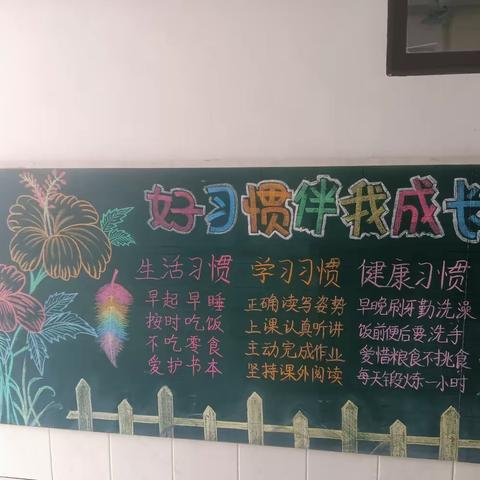 好习惯伴我成长
生活习惯
早起早睡
按时吃饭
不吃零食
爱护书本
学习习惯
正确读写姿势
上课认真听讲
主动完成作业
坚持课外阅读
健康习惯
早晚刷牙勤洗澡
饭前便后要洗手
爱惜粮食不挑食
每天锻炼一小时